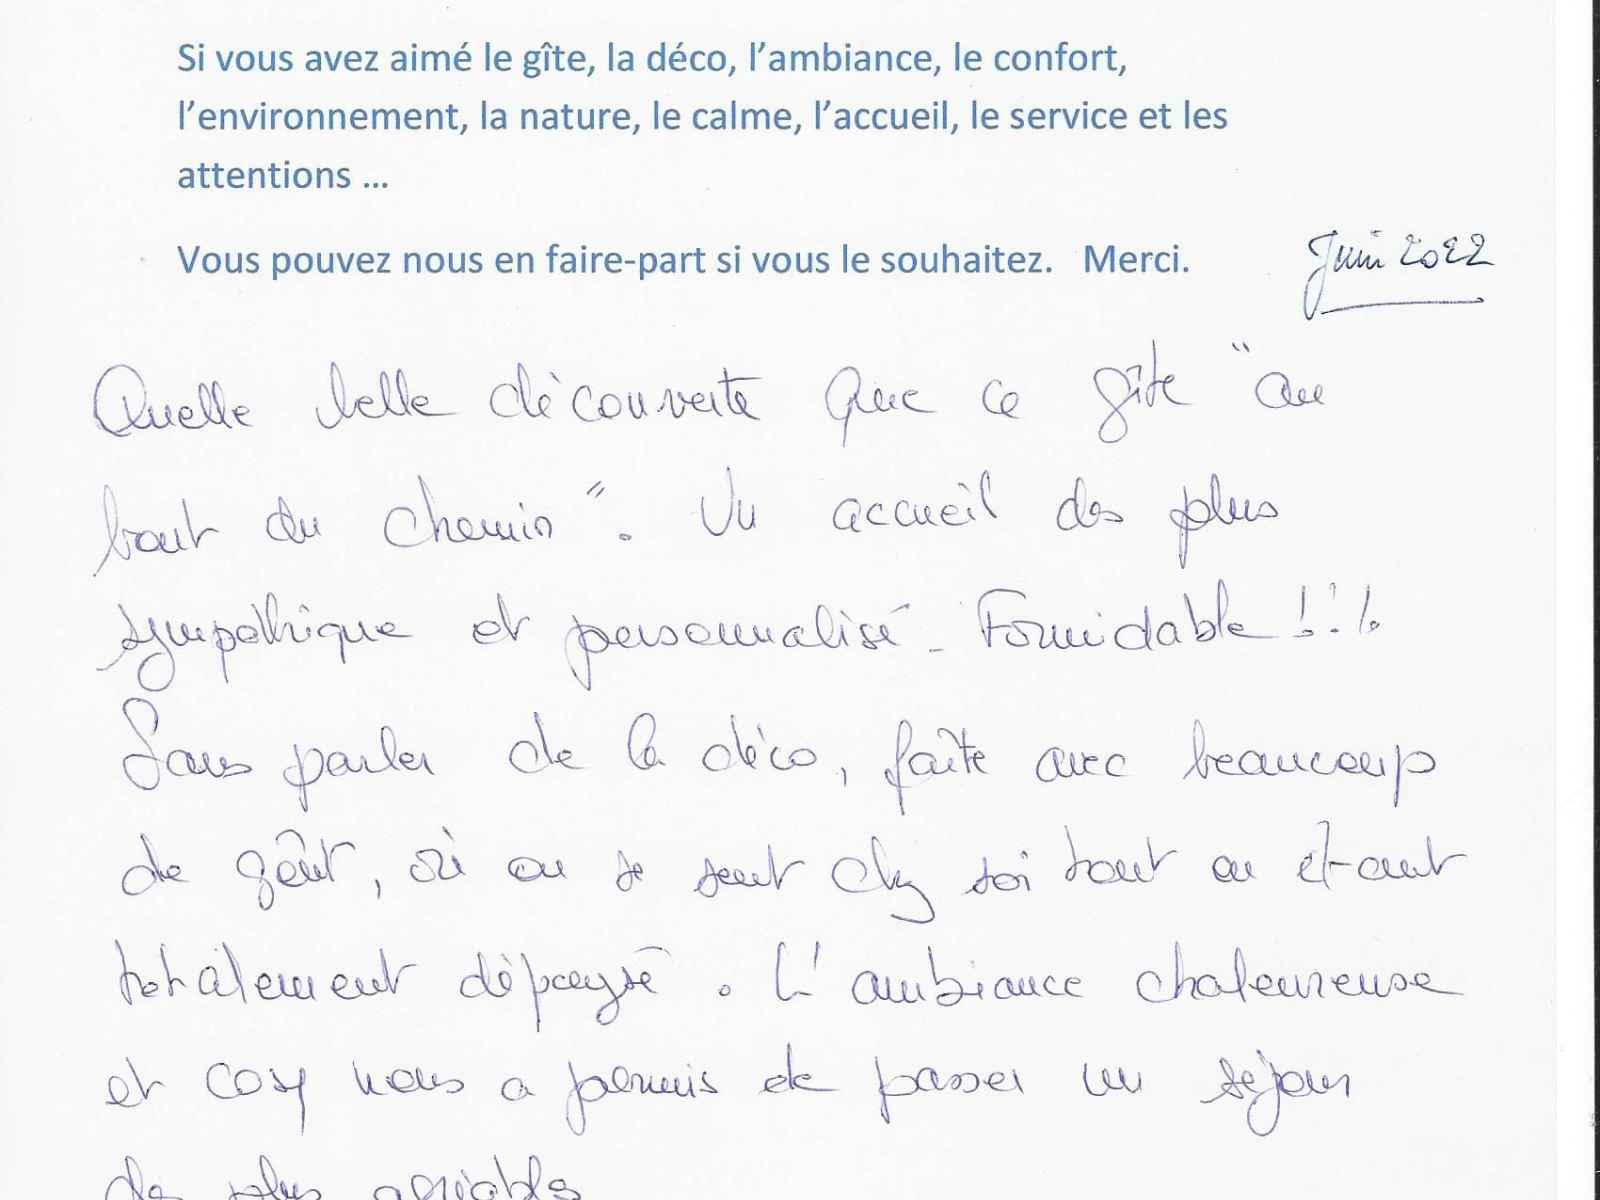 Si vous avez aimé le gîte, la déco, l’ambiance, le confort,
l’environnement, la nature, le calme, l’accueil, le service et les
attentions …
Vous pouvez nous en faire-part si vous le souhaitez. Merci.
Juin 2022
Quelle belle découverte que ce gîte "au
bout du chemin". Un accueil des plus
sympathique et personnalisé - Formidable !!!
Sans parler de la déco, faîte avec beaucoup
de goût, où on se sent chez soi tout en étant
totalement dépaysé. L'ambiance chaleureuse
et cosy nous a permis de passer un séjour
des plus agréables